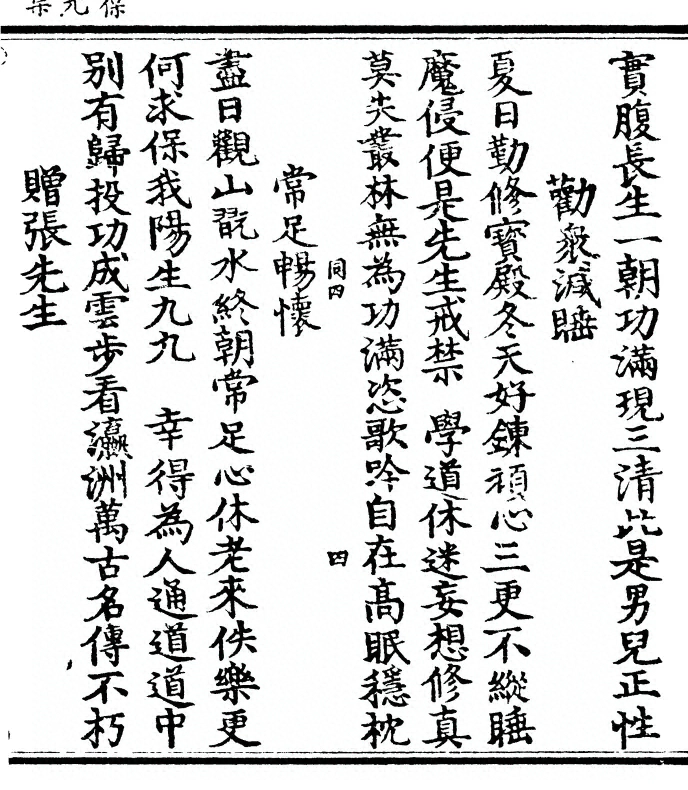 實腹長生一朝功滿現三清此是男兒正性
勸衆減睡
夏日勤修寳殿冬天好鍊頑心三更不縱睡
魔侵便是先生戒禁　學道休迷妄想修真
莫失叢林無為功滿恣歌吟自在高眠穩枕
同四　四
常足暢懷
盡日觀山翫水終朝常足心休老來佚樂更
何求保我陽生九九　幸得為人通道道中
别有歸投功成雲步看瀛洲萬古名傳不朽
贈張先生